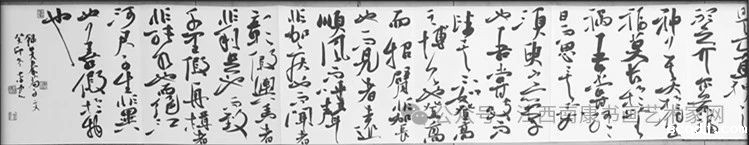 之介尔景福
神莫大於化道
福莫长於无
祸吾尝终
日而思矣不如
须臾之所学
也吾尝跂而
望矣不如登高
之博见也登高
而招臂非加长
也而见者远
顺风而呼声
非加疾也而闻者
彰假舆马者
非利足也而致
千里假舟楫者
非能水也而绝江
河君子生非異
也善假於物
也
癸卯冬
公众号 · 江西南康书画艺术家网